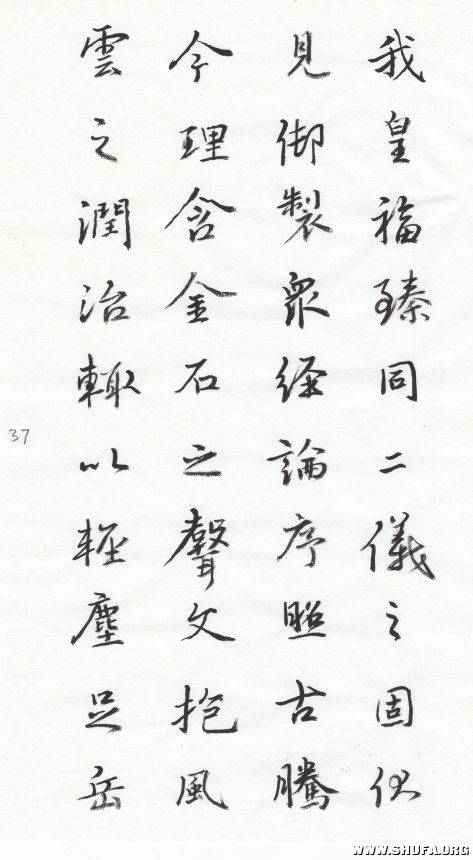 我皇福臻同二儀之固伏
見御製眾經論序照古騰
今理含金石之聲文抱風
雲之潤治輙以輕塵足岳
37
WWW.SHUFA.ORG